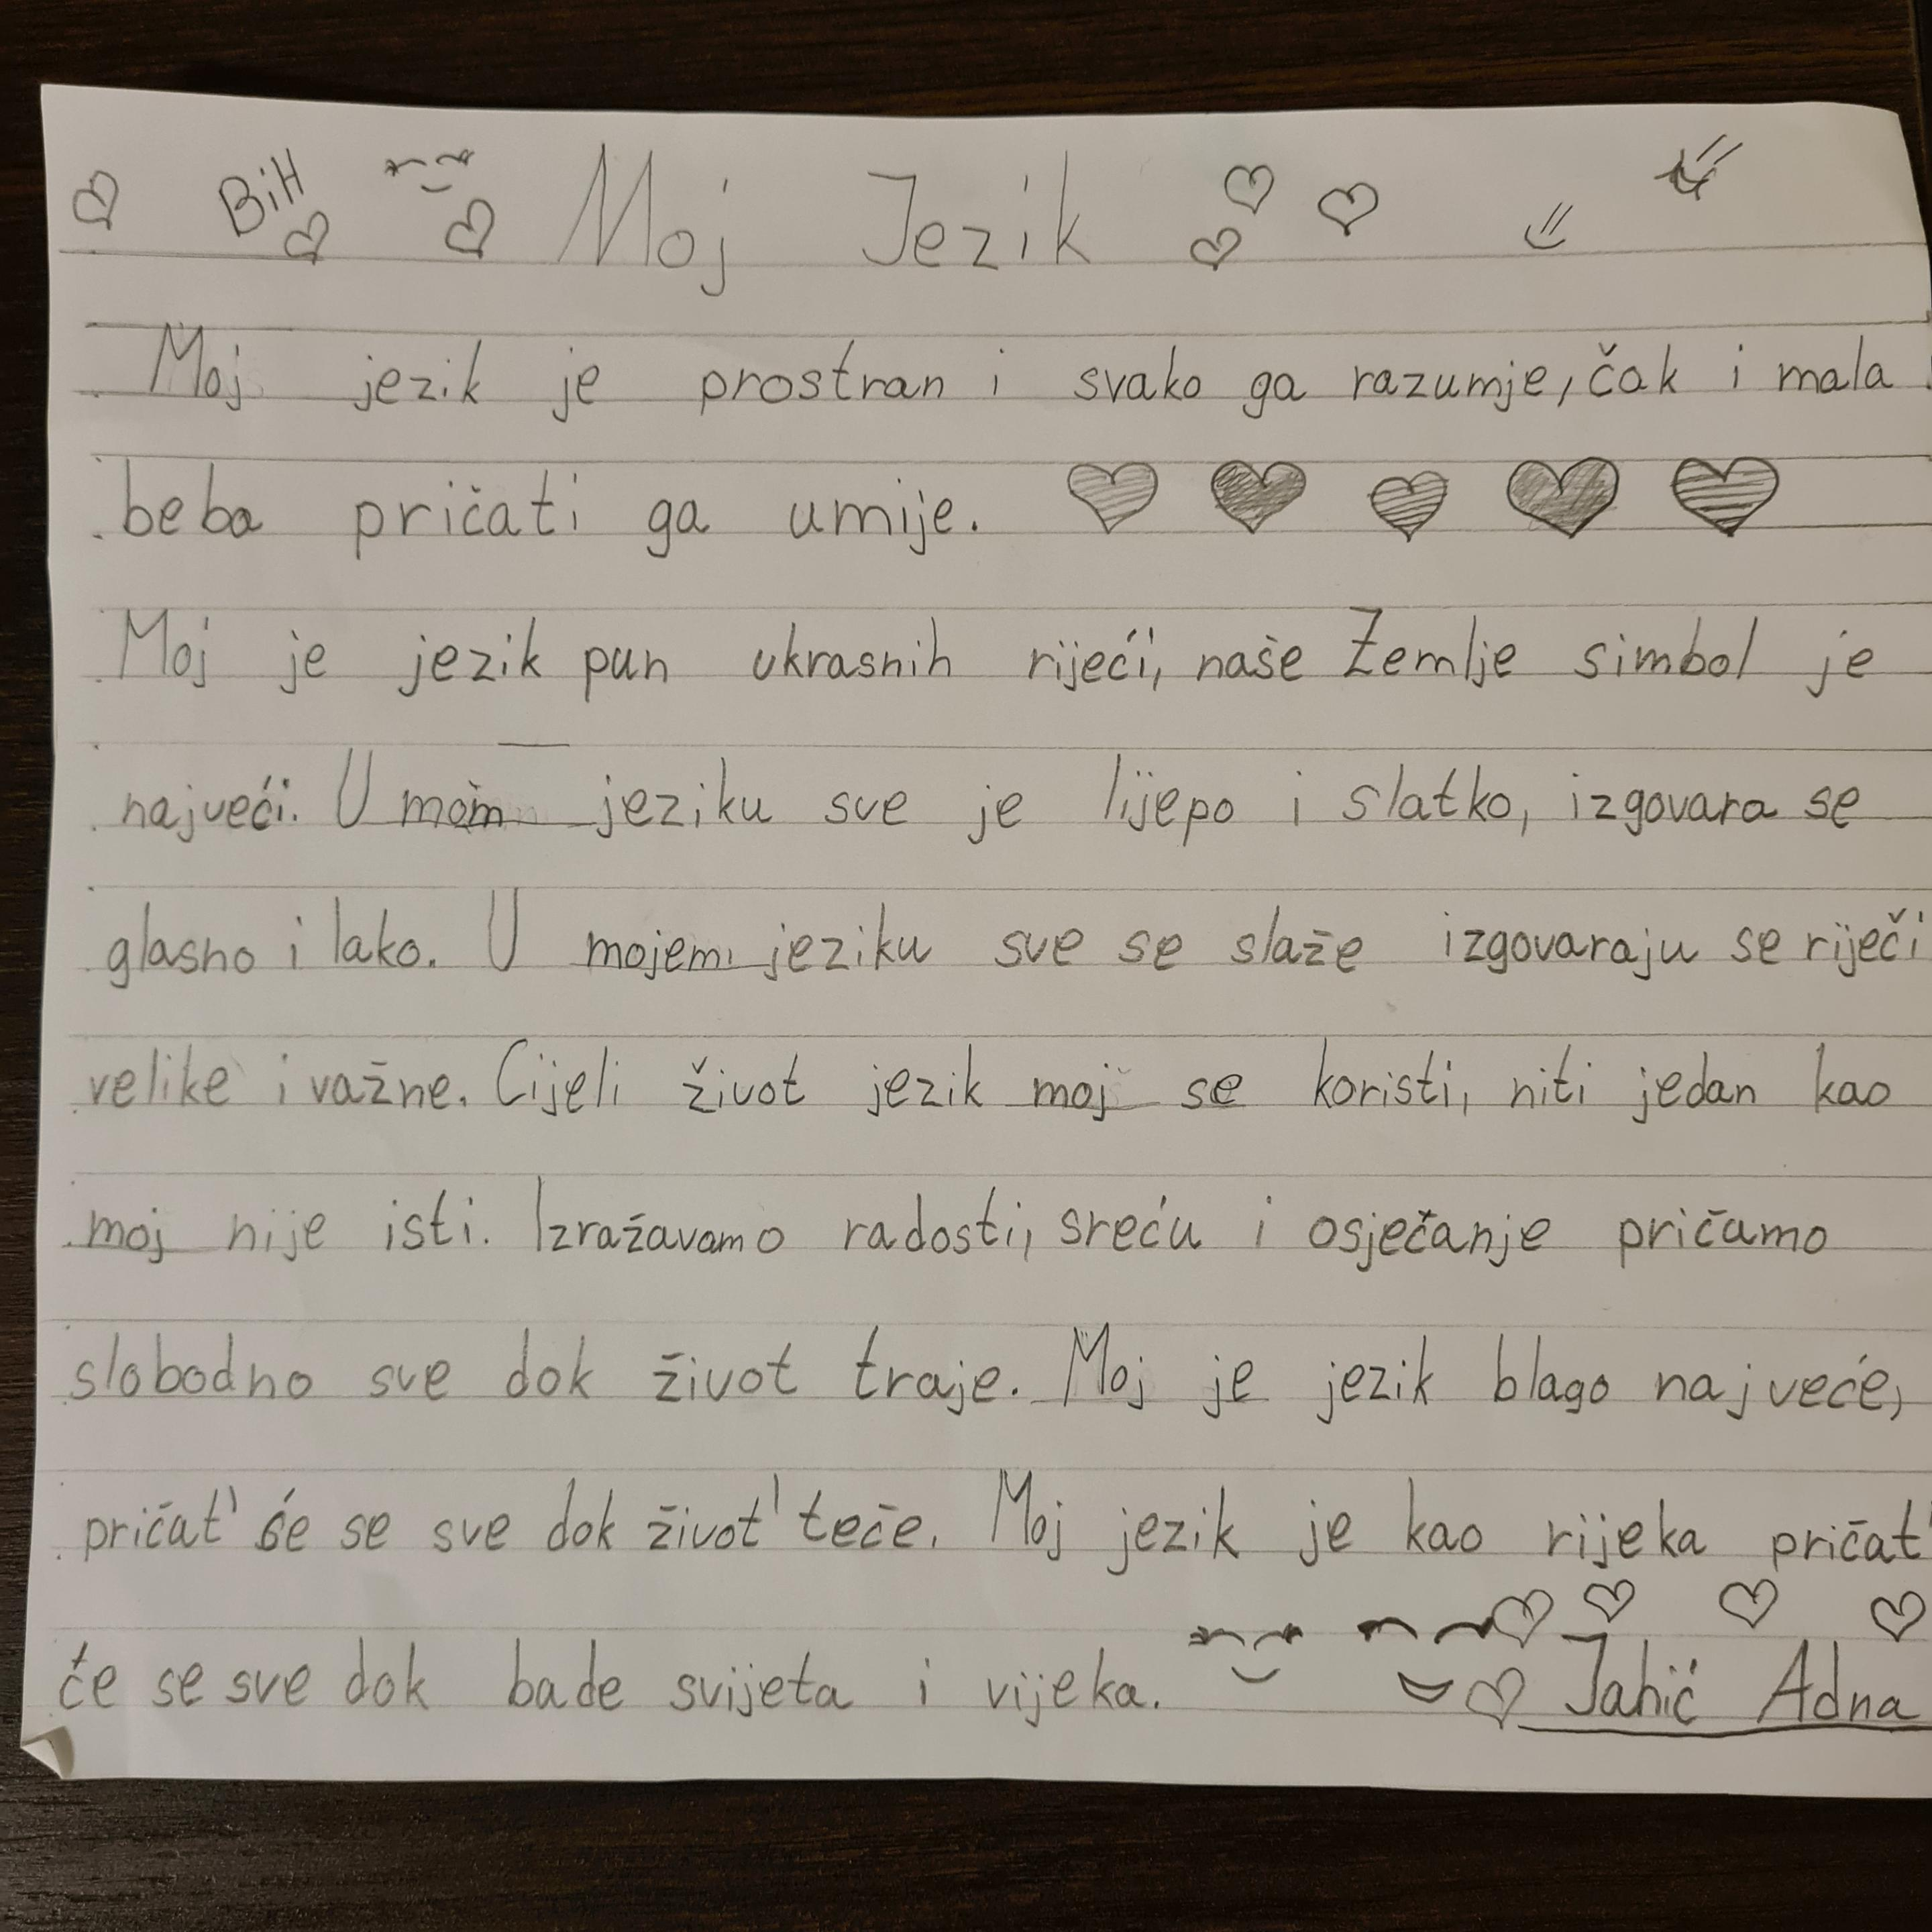 BiH Moj Jezik
Moj jezik je prostran i svako ga razumje, čak i mala
beba pričati ga umije.
Moj je jezik pun ukrasnih riječi, naše Zemlje simbol je
najveći. U mom jeziku sve je lijepo i slatko, izgovara se
glasno i lako. U mojem jeziku sve se slaže izgovaraju se riječi
velike i važne. Cijeli život jezik moj se koristi, niti jedan kao
moj nije isti. Izražavamo radosti, sreću i osječanje pričamo
slobodno sve dok život traje. Moj je jezik blago najveće,
pričat' će se sve dok život' teče. Moj jezik je kao rijeka pričat'
će se sve dok bade svijeta i vijeka. Jahić Adna